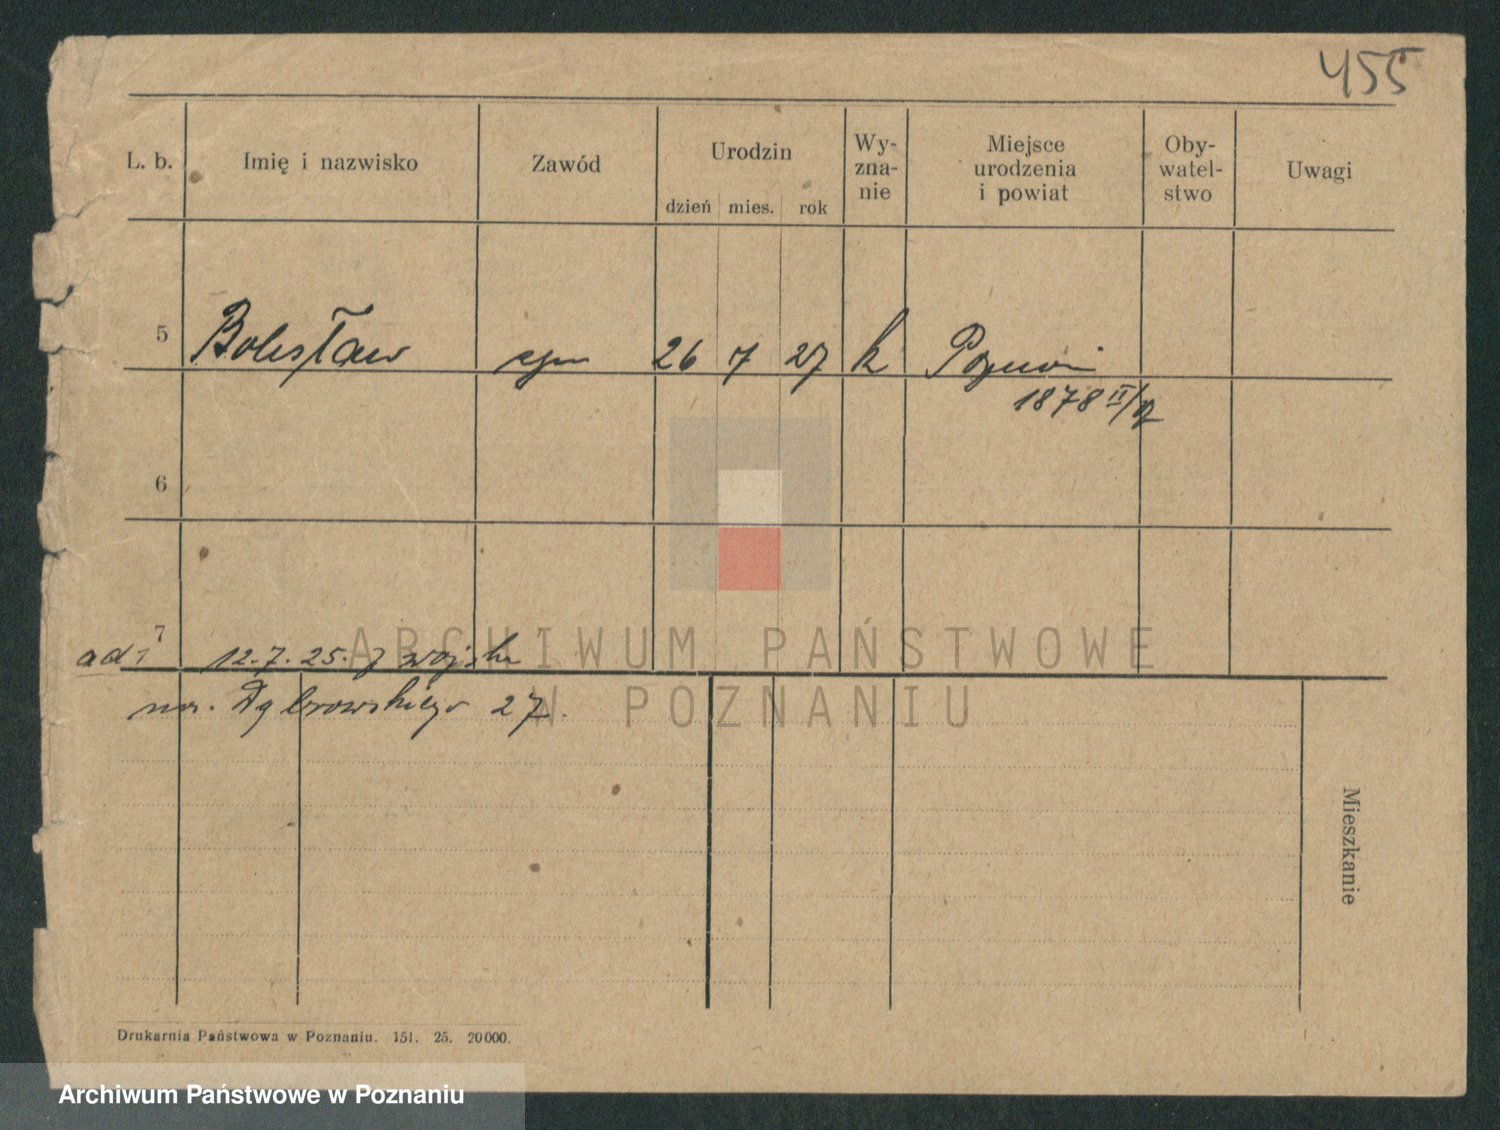 455
L. b. Imię i nazwisko Zawód Urodzin dzień mies. rok Wy- zna- nie Miejsce urodzenia i powiat Oby- watel- stwo Uwagi
5 Bolesław syn 26 7 27 k Poznań
1878 II/
6
7
ad 1 12.7.25. z wojska
na. Dąbrowskiego 27.
ARCHIWUM PAŃSTWOWE
W POZNANIU
Mieszkanie
Drukarnia Państwowa w Poznaniu. 151. 25. 20000.
Archiwum Państwowe w Poznaniu